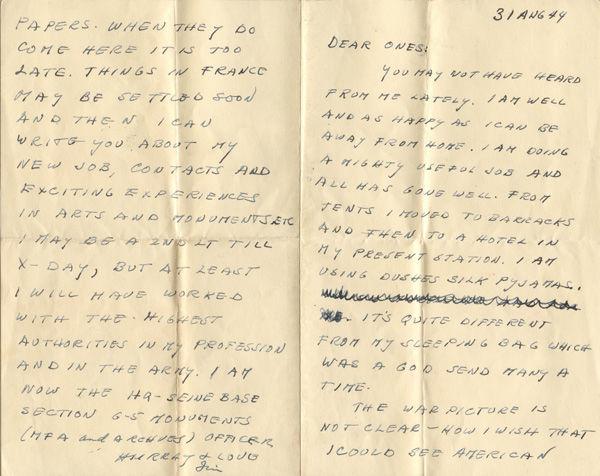 31 AUG 44
DEAR ONES:
YOU MAY NOT HAVE HEARD
FROM ME LATELY. I AM WELL
AND AS HAPPY AS I CAN BE
AWAY FROM HOME. I AM DOING
A MIGHTY USEFUL JOB AND
ALL HAS GONE WELL. FROM
TENTS I MOVED TO BARRACKS
AND THEN TO A HOTEL IN
MY PRESENT STATION. I AM
USING DUSHES SILK PYJAMAS.
IT'S QUITE DIFFERENT
FROM MY SLEEPING BAG WHICH
WAS A GOD SEND MANY A
TIME.
THE WAR PICTURE IS
NOT CLEAR - HOW I WISH THAT
I COULD SEE AMERICAN
PAPERS. WHEN THEY DO
COME HERE IT IS TOO
LATE. THINGS IN FRANCE
MAY BE SETTLED SOON
AND THEN I CAN
WRITE YOU ABOUT MY
NEW JOB, CONTACTS AND
EXCITING EXPERIENCES
IN ARTS AND MONUMENTS ETC
I MAY BE A 2ND LT TILL
X-DAY, BUT AT LEAST
I WILL HAVE WORKED
WITH THE HIGHEST
AUTHORITIES IN MY PROFESSION
AND IN THE ARMY. I AM
NOW THE HQ-SEINE BASE
SECTION G-5 MONUMENTS
(MFA and ARCHIVES) OFFICER
HURRAY & LOVE
Jim